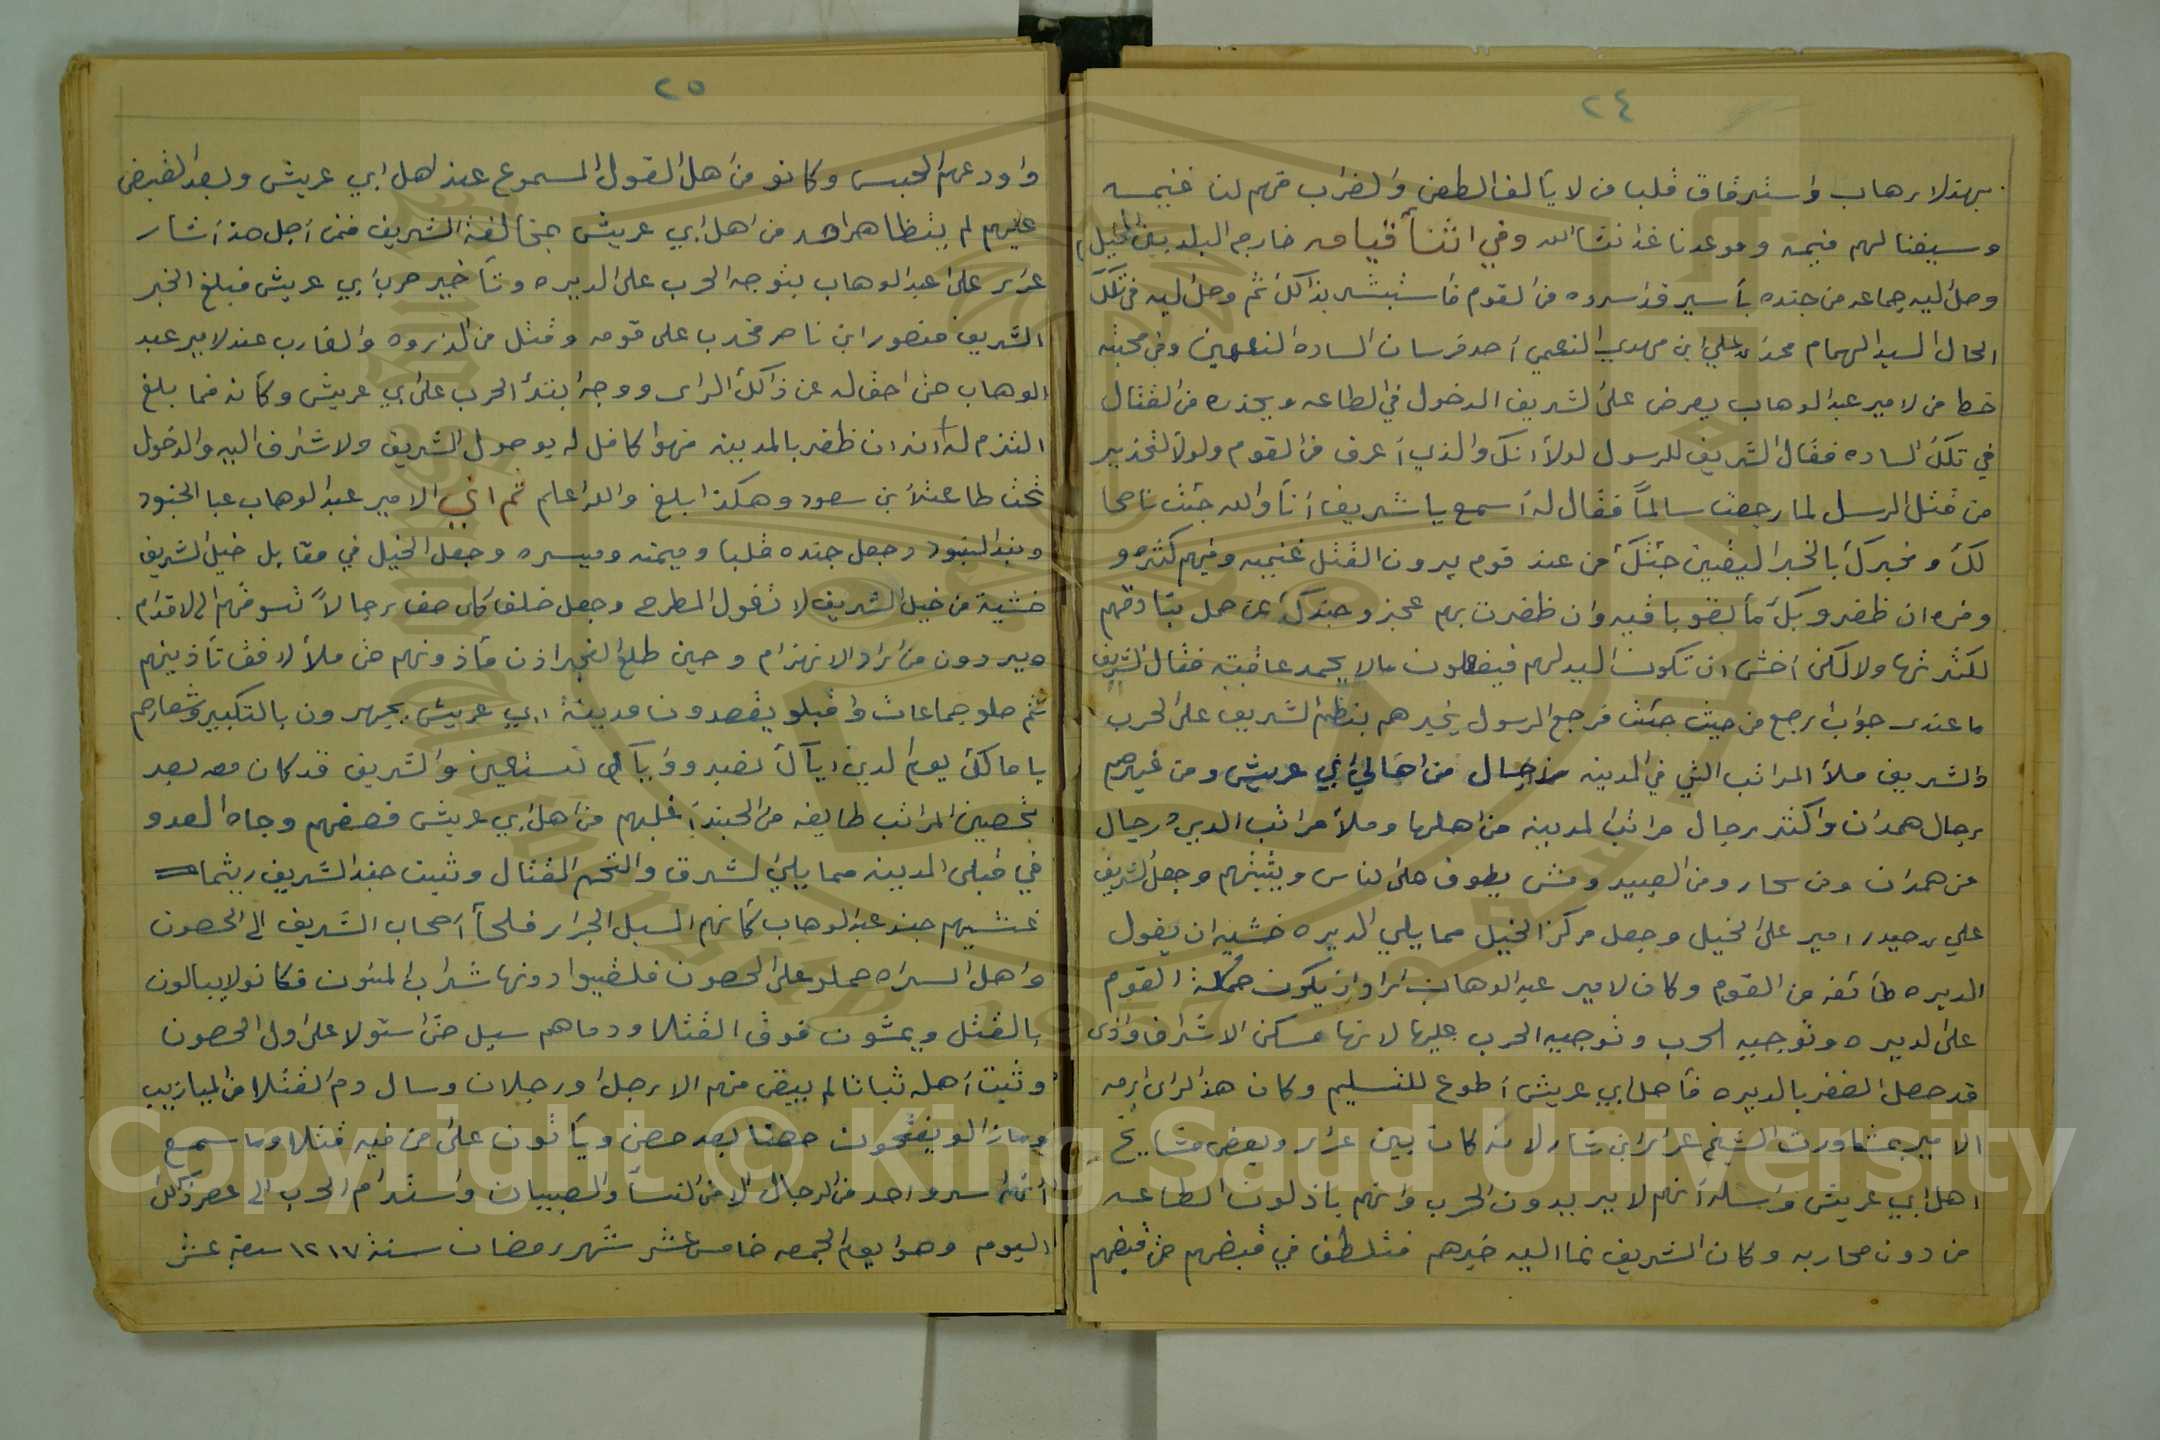 ٢٤
بهذلارهاب واسترقاق قلبا من لا يآلف الطعن والضراب فهم لنا غنيمه
وسيفنا لهم قيمه وموعدنا غدا انشا الله وفي اثنآ قيامه خارج البلد
وصل اليه جماعه من جنده بأسير قد اسروه من القوم فاستبشر بذالك ثم وصل اليه في تلك
الحال السيد الهمام محمد بن علي ابن مهدي النعمي احد فرسان الساده النعميين وفي صحبته
خط من لامير عبد الوهاب يعرض على الشريف الدخول في الطاعه ويحذره من القتال
في تلك الساده فقال الشريف للرسول لولا انك والذي أعرف من القوم ولولا لتحذير
من قتل الرسل لما رجعت سالماً فقال له أسمع يا شريف أنا والله جئت ناصحا
لك ومخبرك بالخبر اليقين جئتك من عند قوم يرون القتل غنيمه وفيهم كثره و
وفره ان ظفرو بك ما يقو باقيه وان ظفرت بهم عجز وجندك عن حمل بنادقهم
لكثرتها ولاكني أخشى ان تكون اليد لهم فيفعلون مالا يحمد عاقبته فقال الشريف
ما عندي جواب ارجع من حيث جئت فرجع الرسول يخبرهم بتظيم الشريف على الحرب
والشريف ملأ المراتب التي في المدينه رجال من اهالي ابي عريش ومن غيرهم
رجال همدان واكثر رجال مراتب المدينه من اهلها وملأ مراتب الديره رجال
من همدان ومن سحار ومن العبيد ومشى يطوف على الناس ويثبتهم وجعل الشريف
علي بن حيدر امير على الخيل وجعل مركز الخيل مما يلي الديره خشيه ان يغول
الديره طائفه من القوم وكان لامير عبد الوهاب اراد ان يكون حملة القوم
على الديره وتوجيه الحرب وتوجيه الحرب عليها لانها مسكن الاشراف واذى
قد حصل الضفر بالديره فأهل ابي عريش أطوع للتسليم وكان هذا لراى ابرمه
الامير بمشاورت الشيخ عرار ابن شار لانه كان بين عرار وبعض مشايخ
اهل ابي عريش مراسله أنهم لا يريدون الحرب وانهم باذلون الطاعه
من دون محاربه وكان الشريف نما اليه خبرهم فتلطف في قبضهم حتى قبضهم
٢٥
واودعهم الحبس وكانو من اهل القول المسموع عند اهل ابي عريش وبعد القبض
عليهم لم يتظاهر احد من اهل ابي عريش بمخالفة الشريف فمن أجل هذ أشار
عرار على عبد الوهاب بتوجه الحرب على الديره وتأخير حرب ابي عريش فبلغ الخبر
الشريف منصور ابن ناصر فحدب على قومه وقتل من الذروه والغارب عند لامير عبد
الوهاب حتى احفله عن ذالك الراى ووجه ابتدأ الحرب على ابي عريش وكانه فما بلغ
التزم له انه ان ظفر بالمدينه فهوا كافل له بوصول الشريف ولاشراف اليه والدخول
تحت طاعة ابن سعود وهكذا بلغ والله اعلم ثم ان الامير عبد الوهاب عبا الجنود
وبند البنود وجعل جنده قلبا وميمنه وميسره وجعل الخيل في مقابل خيل الشريف
خشية من خيل الشريف لا تغول المطرح وجعل خلف كل صف رجالاً تسوقهم الى لاقدام
ويردون من اراد الانهزام وحين طلع الفجر اذن مأذونهم حتى ملأ لافق تأذينهم
ثم صلو جماعات واقبلو يقصدون مدينة ابي عريش يجهرون بالتكبير وشعارهم
يا مالك يوم الدين اياك نعبد واياك نستعين والشريف قد كان معه بعد
تحصين المراتب طايفه من الجند أغلبهم من اهل ابي عريش فصفهم وجاه العدو
في قبلى المدينه مما يلي الشرق والتحم القتال وثبت جند الشريف ريثما
غشيهم جند عبد الوهاب كأنهم السيل الجرار فلجأ أصحاب الشريف الى الحصون
واهل السراه حملو على الحصون فلقيوا دونها شراب المنون فكانو لا يبالون
بالقتل ويمشون فوق القتلا ودماهم سيل حتى استولا على اول الحصون
وثبت أهله ثباتا لم يبقى منهم الا رجل او رجلان وسال دم القتلا من الميازيب
وما زالو يفتحون حصنا بعد حصن ويأتون على من فيه قتلا وما سمع
أنه اسر واحد من الرجال الا من النسآ والصبيان واستدام الحرب الى عصر ذالك
اليوم وهوا يوم الجمعه خامس عشر شهر رمضان سنة ١٢١٧ سبعة عشر
Copyright © King Saud University
1957